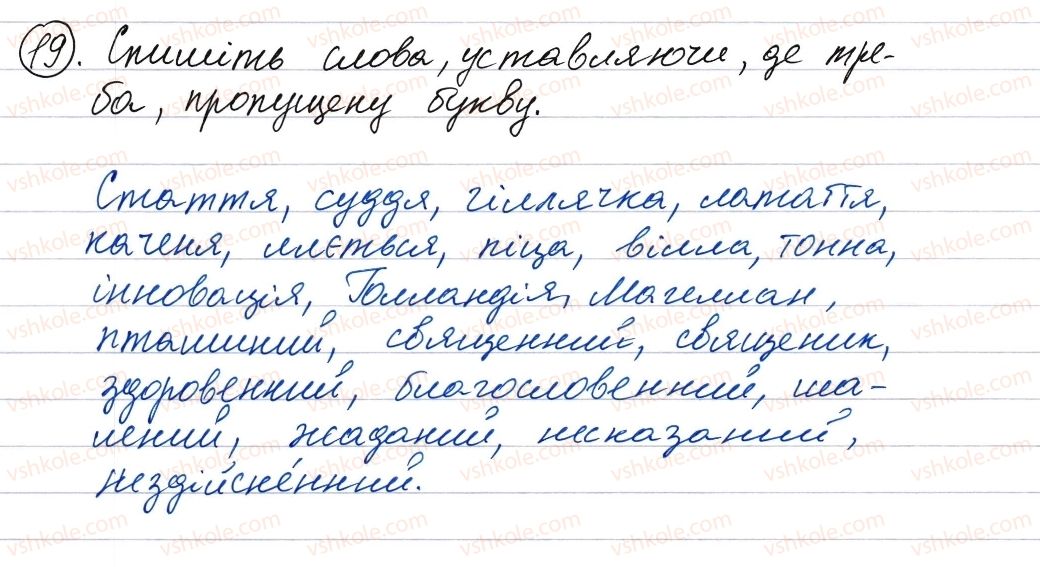 19. Спишіть слова, уставляючи, де тре-
ба, пропущену букву.
Стаття, суддя, гіллячка, латаття,
каченя, ллється, піца, вілла, тонна,
інновація, Голландія, Магеллан,
пташиний, священний, священик,
здоровенний, благословенний, ша-
лений, жаданий, несказаний,
нездійсне́нний.